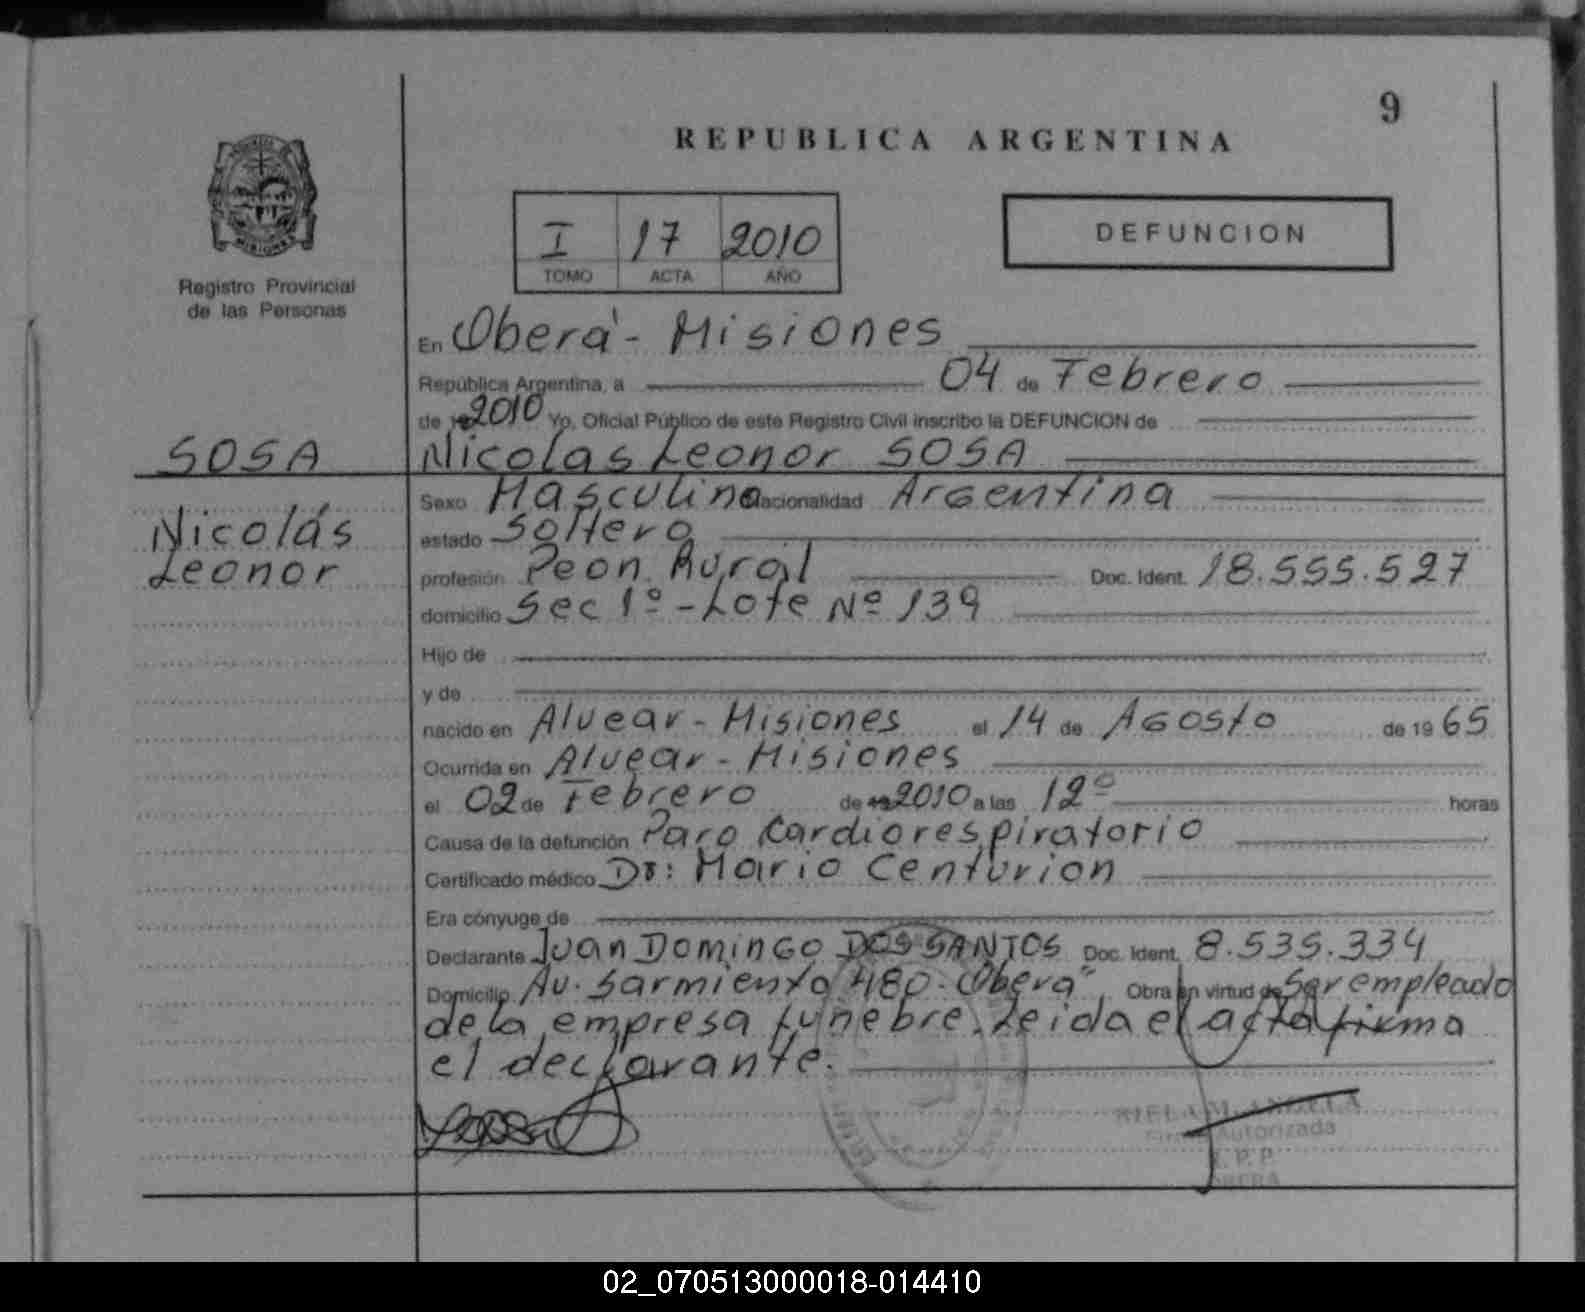 9
REPUBLICA ARGENTINA
MISIONES
Registro Provincial
de las Personas
I 17 2010
TOMO ACTA AÑO
DEFUNCION
En Oberá - Misiones
República Argentina, a 04 de Febrero
de 2010 Yo, Oficial Público de este Registro Civil inscribo la DEFUNCION de
SOSA
Nicolás
Leonor
Nicolas Leonor SOSA
Sexo Masculino Nacionalidad Argentina
estado Soltero
profesión Peon Rural Doc. Ident. 18.555.527
domicilio Sec 1º - Lote Nº 139
Hijo de
y de
nacido en Alvear - Misiones el 14 de Agosto de 1965
Ocurrida en Alvear - Misiones
el 02 de Febrero de 2010 a las 12º horas
Causa de la defunción Paro Kardiorespiratorio
Certificado médico Dr: Mario Centurion
Era cónyuge de
Declarante Juan Domingo DOS SANTOS Doc. Ident. 8.535.334
Domicilio Av. Sarmiento 480 - Oberá, Obra en virtud de Ser empleado
de la empresa funebre. Leida el acta firma
el declarante.
Autorizada
OBERA
02_070513000018-014410